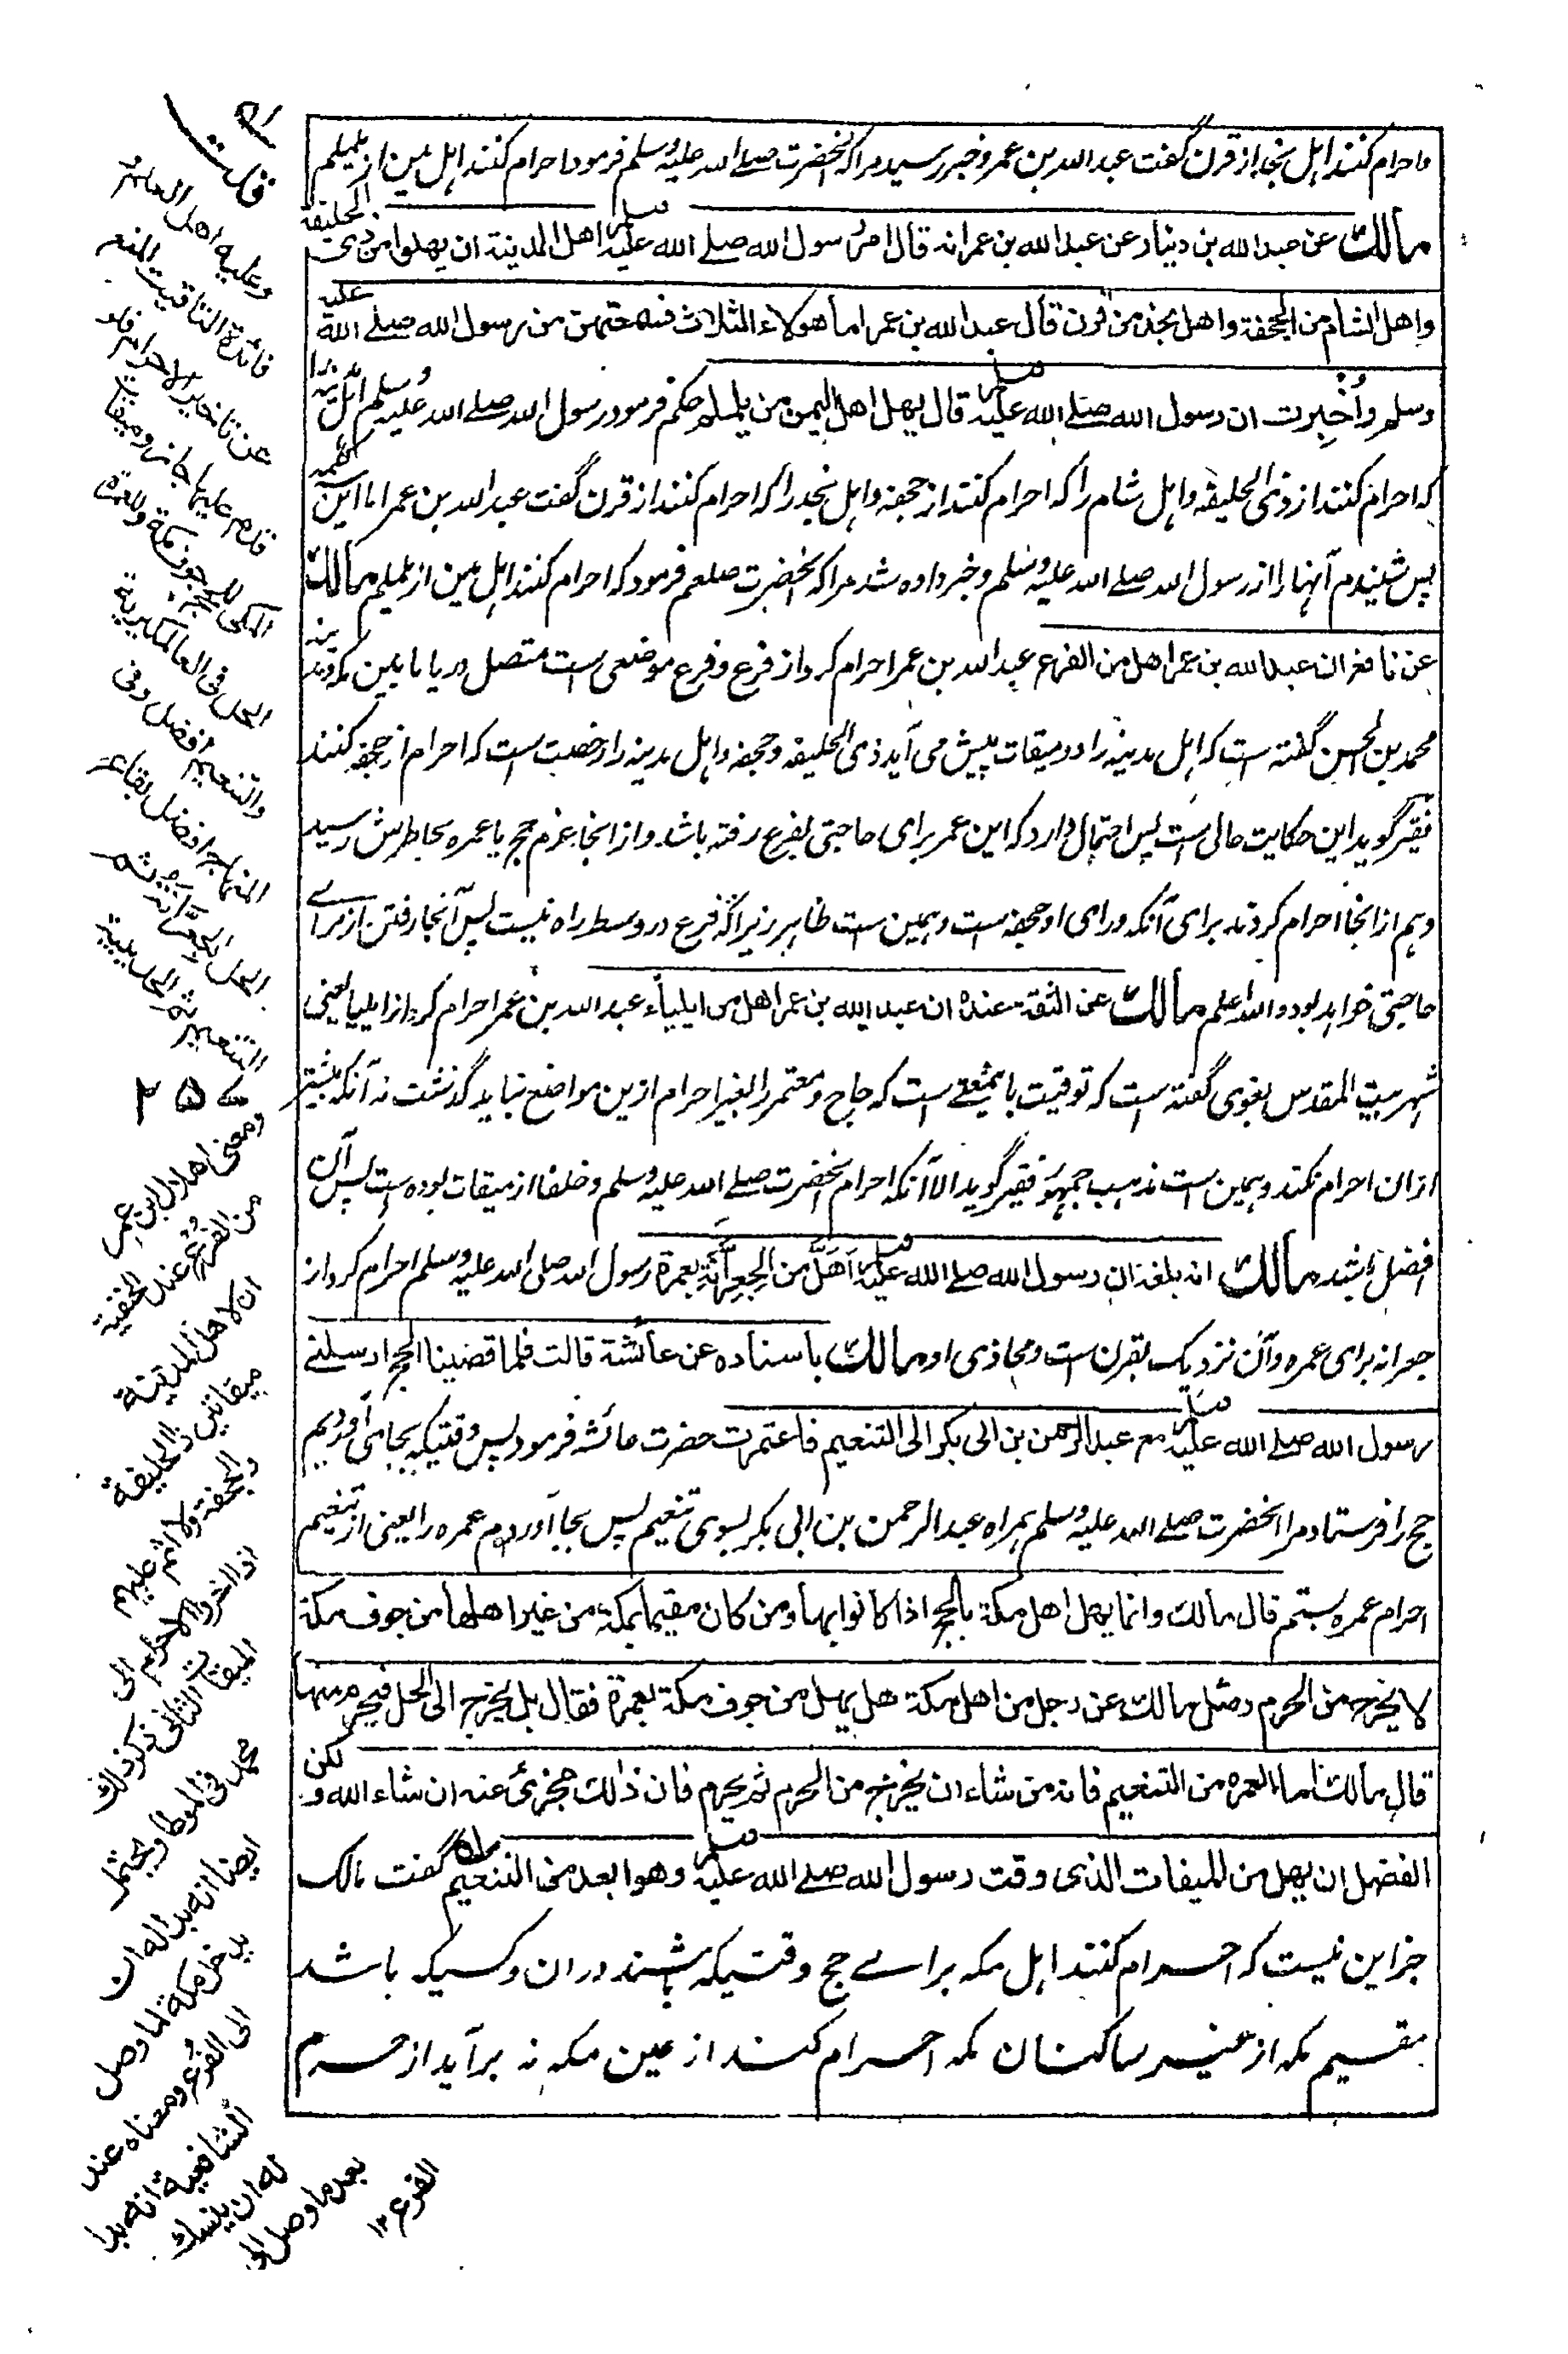 و احرام کنند اہل نجد از قرن گفت عبد الله بن عمر و خبر رسید مرا که آنحضرت صلے الله علیه وسلم فرمود احرام کنند اہل یمن از یلملم
مالك عن عبد الله بن دینار عن عبد الله بن عمر انه قال امر رسول الله صلے الله علیه وسلم اهل المدینة ان یهلوا من ذی الحلیفة
واهل الشام من الجحفة واهل نجد من قرن قال عبد الله بن عمر اما هولاء الثلاث فسمعتهن من رسول الله صلے الله علیه
وسلم وأُخبِرت ان رسول الله صلے الله علیه وسلم قال یهل اهل الیمن من یلملم حکم فرمود رسول الله صلے الله علیه وسلم اہل مدینه را
که احرام کنند از ذی الحلیفه و اہل شام را که احرام کنند از جحفه و اہل نجد را که احرام کنند از قرن گفت عبد الله بن عمر اما این سه کلمه
پس شنیدم آنہا را از رسول الله صلے الله علیه وسلم و خبر داده شد مرا که آنحضرت صلعم فرمود که احرام کنند اہل یمن از یلملم مالك
عن نافع ان عبد الله بن عمر اهل من الفرع عبد الله بن عمر احرام کرد از فرع و فرع موضعی ست متصل دریا مابین مکه و مدینه
محمد بن الحسن گفته است که اہل مدینه را دو میقات پیش می آید ذی الحلیفه و جحفه و اہل مدینه را رخصت است که احرام از جحفه کنند
فقیر گوید این حکایت حالی ست پس احتمال دارد که ابن عمر برای حاجتی بفرع رفته باشد و از انجا عزم حج یا عمره بخاطرش رسید
و ہم از انجا احرام کردند برای آنکه ورای او جحفه ست و ہمین ست ظاہر زیراکه فرع در وسط راه نیست پس آنجا رفتن از براے
حاجتی خواہد بود والله اعلم مالك عن الثقة عنده ان عبد الله بن عمر اهل من ایلیاء عبد الله بن عمر احرام کرد از ایلیا یعنی
شہر بیت المقدس بغوی گفته است که توقیت بایمعنے است که حاج و معتمر را بغیر احرام ازین مواضع نباید گذشت نه آنکه پیشتر
ازان احرام نکند و ہمین است مذہب جمہور فقیر گوید الا آنکه احرام آنحضرت صلے الله علیه وسلم و خلفا از میقات بوده است پس آن
افضل باشد مالك انه بلغه ان رسول الله صلے الله علیه وسلم اَهَلَّ من الجِعِرّانَةِ بعمرة رسول الله صلی الله علیه وسلم احرام کرد از
جعرانه برای عمره و آن نزدیک بقرن ست و محاذی او مالك باسناده عن عائشة قالت فلما قضینا الحج ارسلنے
رسول الله صلے الله علیه وسلم مع عبد الرحمن بن ابی بکر الی التنعیم فاعتمرت حضرت عائشه فرمود پس وقتیکه بجا می آوردیم
حج را فرستاد مرا آنحضرت صلے الله علیه وسلم ہمراه عبد الرحمن بن ابی بکر بسوی تنعیم پس بجا آوردم عمره را یعنی از تنعیم
احرام عمره بستم قال مالك وانما یهل اهل مکة بالحج اذا کانوا بها ومن کان مقیما بمکة من غیر اهلها من جوف مکة
لا یخرج من الحرم وسئل مالك عن رجل من اهل مکة هل یهل من جوف مکة بعمرة فقال بل یخرج الی الحل فیحرم منها
قال مالك اما العمرة من التنعیم فانه من شاء ان یخرج من الحرم ثم یحرم فان ذالك مجزئ عنه ان شاء الله ولکن
الفضل ان یهل من المیقات الذی وقت رسول الله صلے الله علیه وسلم وهو ابعد من التنعیم گفت مالک
جز این نیست که احرام کنند اہل مکه براے حج وقتیکه باشند دران و کسیکه باشد
مقیم مکه از غیر ساکنان مکه احرام کنند از عین مکه نه برآید از حرم
قلت
وعلیه اهل العلم
فائدة التاقیت المنع
عن تاخیر الاحرام فلو
قدم علیها جاز ومیقات
المکی للحج جوف مکة وللعمرة
الحل فی العالمکیریة
والتنعیم افضل وفی
المنهاج افضل بقاع
الحل الجعرانة ثم
التنعیم ثم الحدیبیة
ومعنی اهلال ابن عمر
من الفرع عند الحنفیة
ان لاهل المدینة
میقاتین ذا الحلیفة
والجحفة ولا اثم علیهم
اذا اخروا الاحرام الی
المیقات الثانی ذکر ذلك
محمد فی الموطا ویحتمل
ایضا انه بدا له ان
یدخل مکة لما وصل
الی الفرع ومعناه عند
الشافعیة انه بدا
له ان ینسك
بعد ما وصل الی
الفرع ۱۲